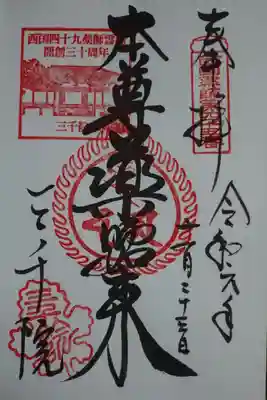 奉拝
令和元年
十一月二十三日
本尊薬師如来
三千院
西国四十九薬師霊場
開創三十周年